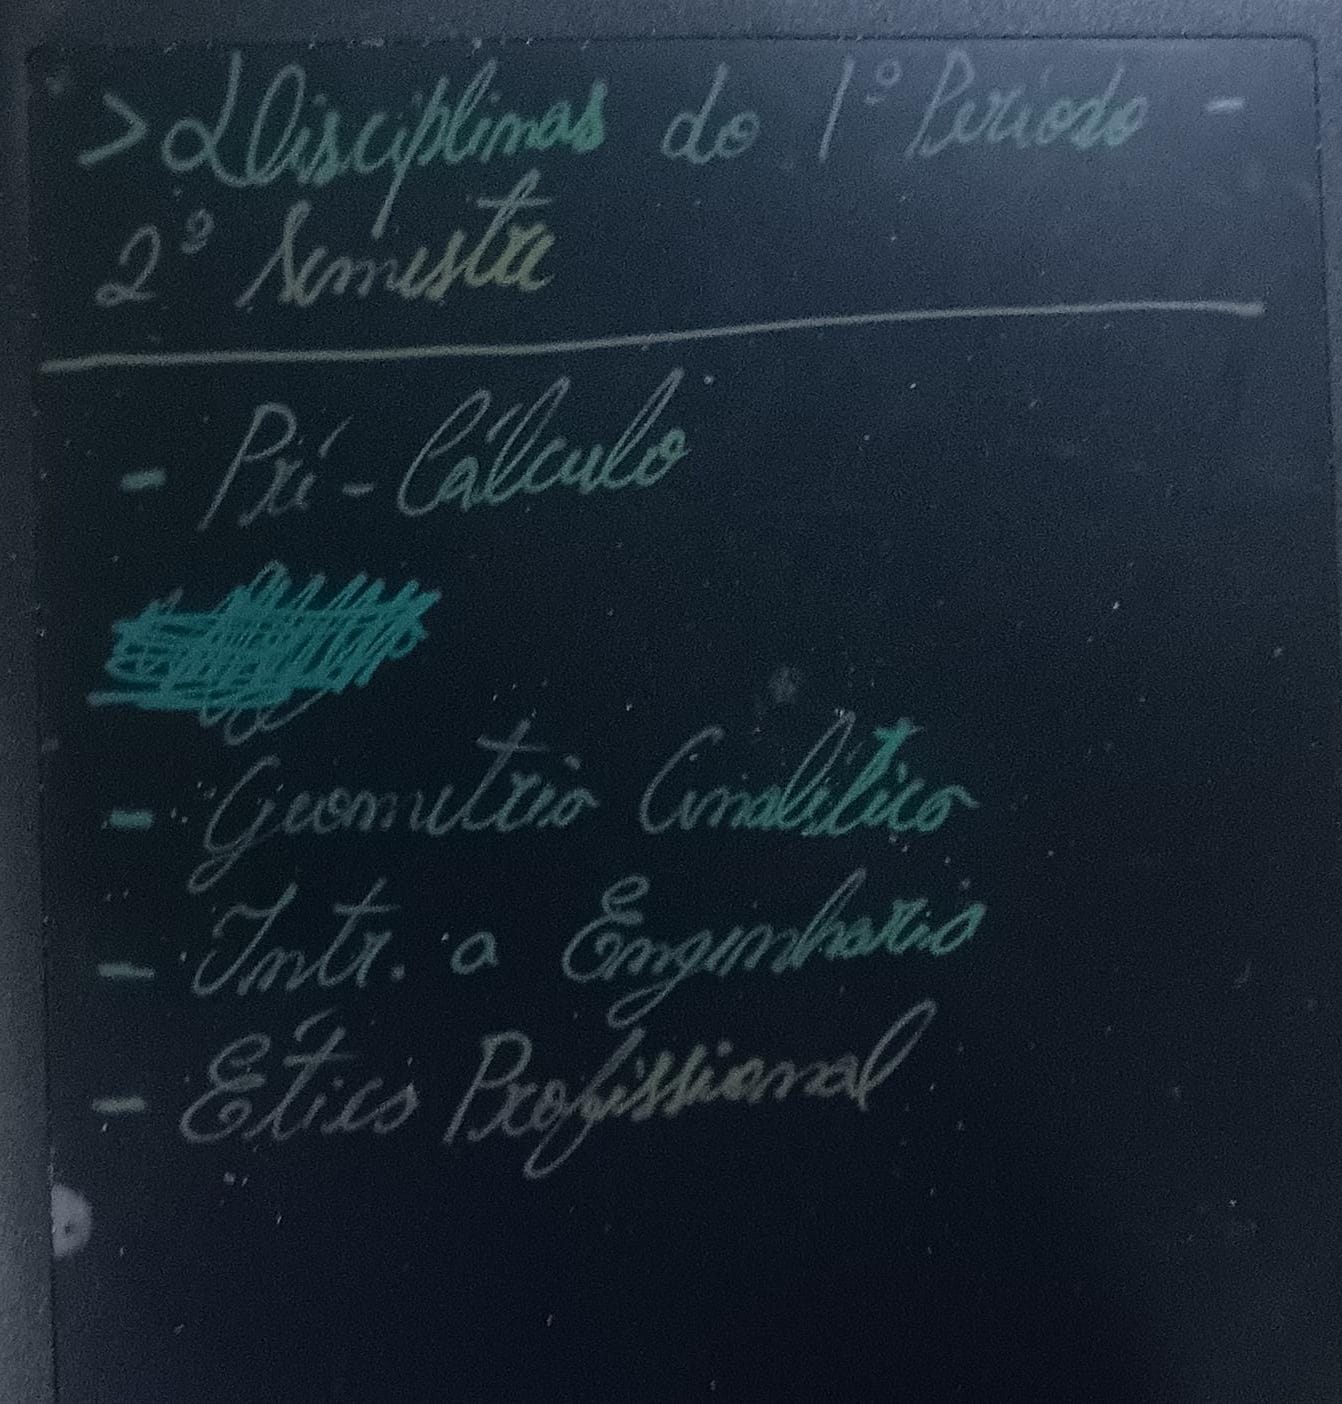 > Disciplinas do 1º Período -
2º Semestre
- Pré-Cálculo
- Geometria Analítica
- Intr. a Engenharia
- Ética Profissional